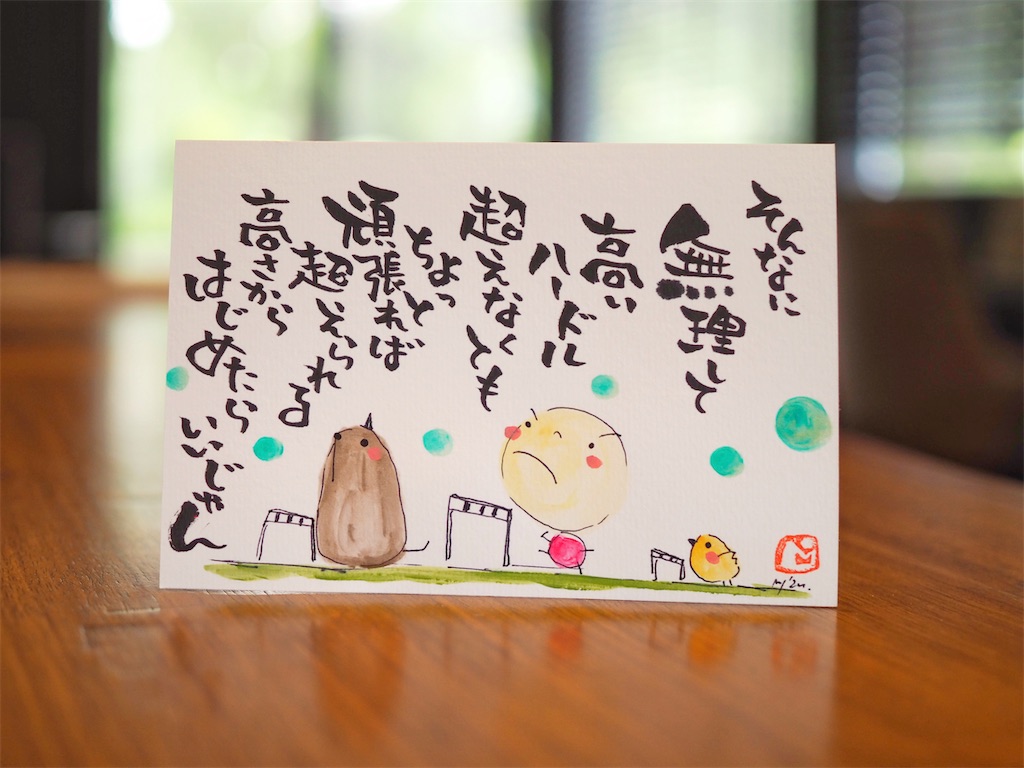 そんなに
無理して
高い
ハードル
超えなくとも
ちょっと
頑張れば
超えられる
高さから
はじめたら
いいじゃん